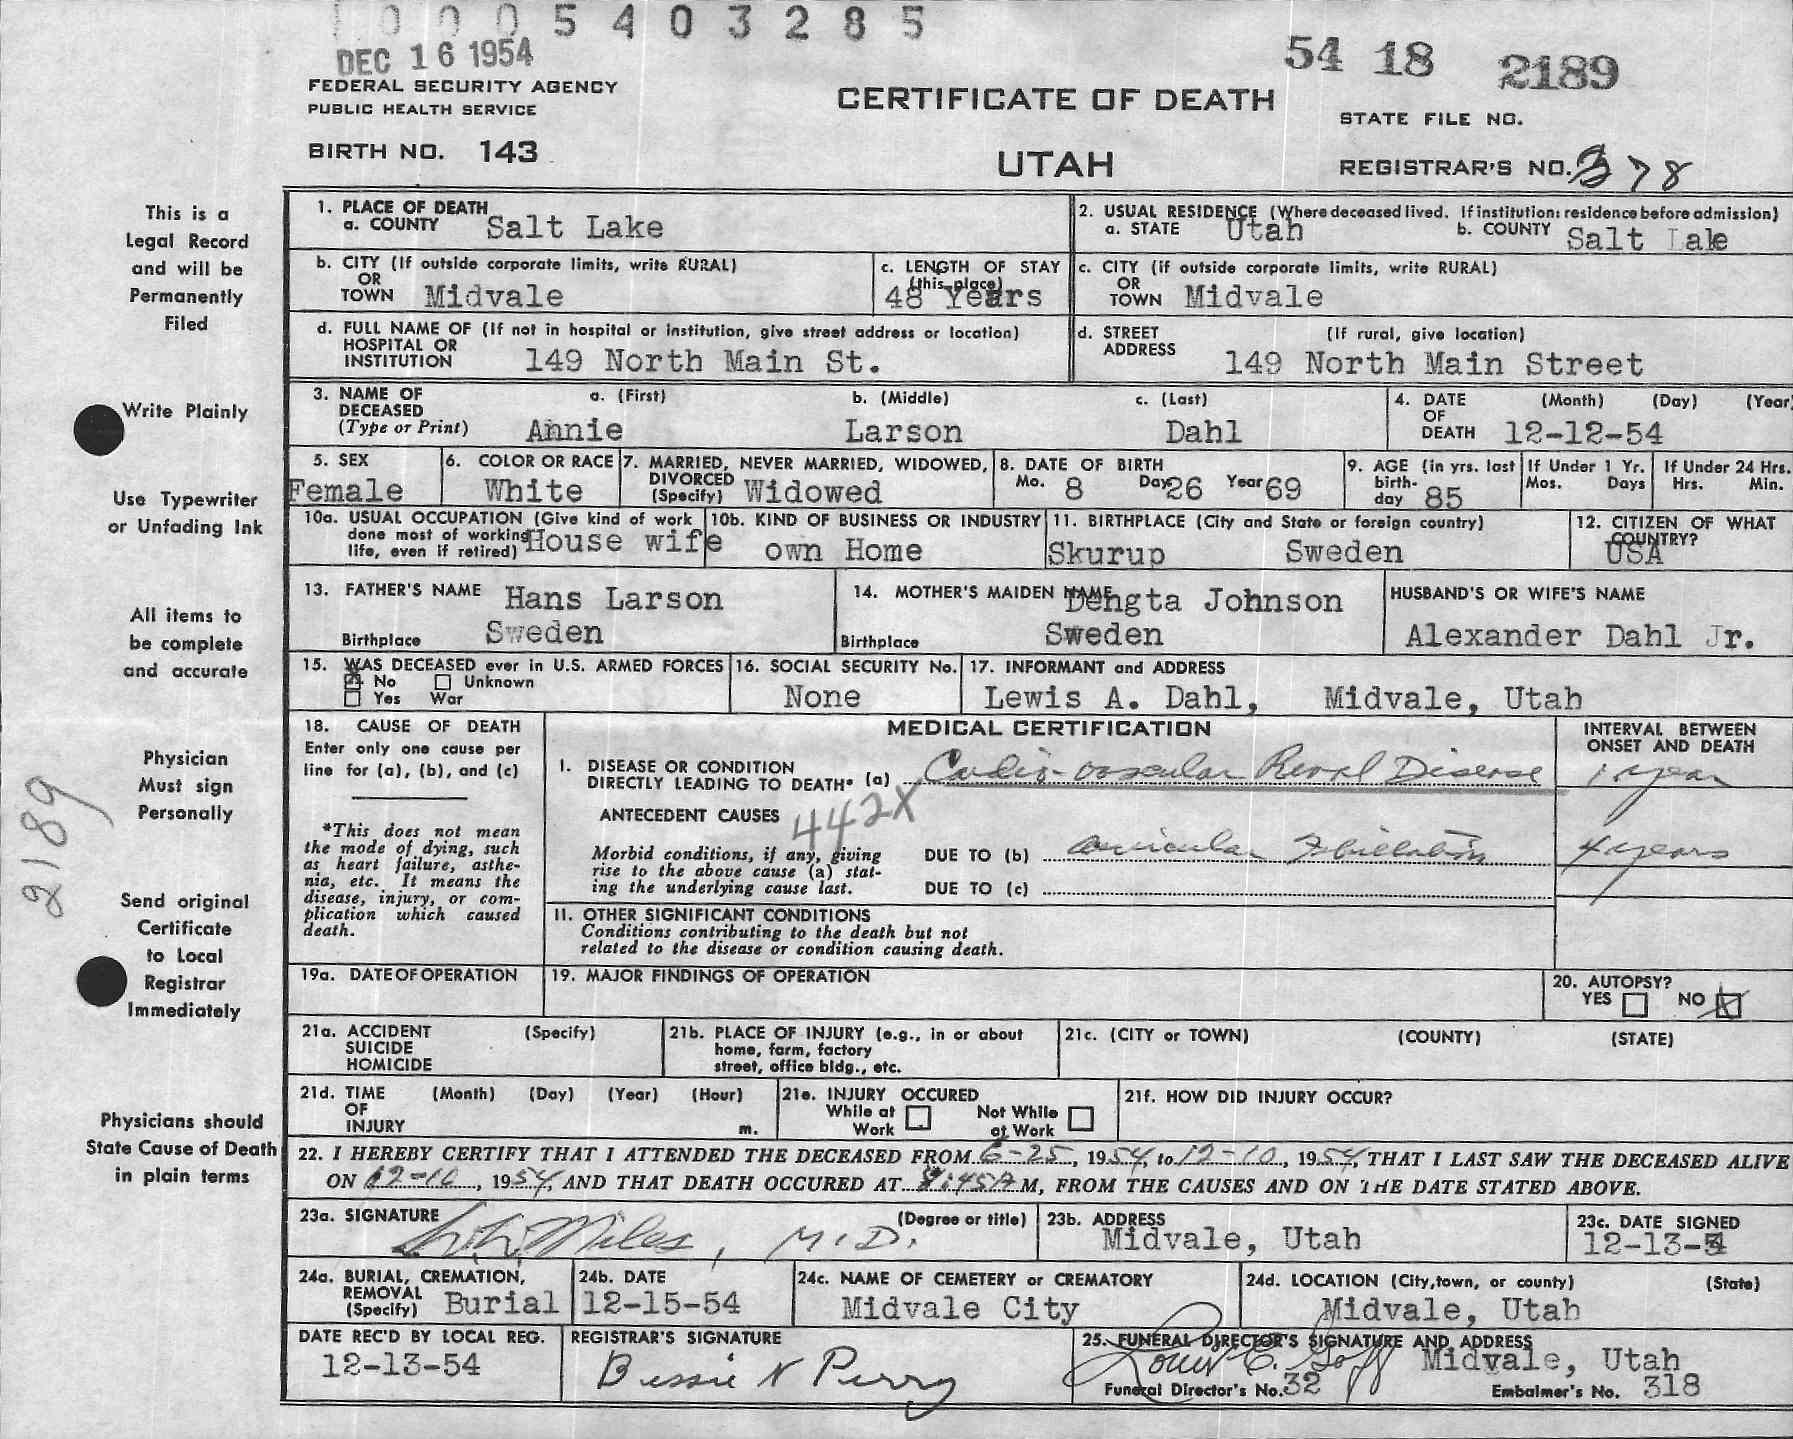 1000 5 4 0 3 2 8 5
DEC 16 1954
54 18 2189
FEDERAL SECURITY AGENCY
PUBLIC HEALTH SERVICE
CERTIFICATE OF DEATH
STATE FILE NO.
BIRTH NO. 143
UTAH
REGISTRAR'S NO. 378
This is a
Legal Record
and will be
Permanently
Filed
Write Plainly
Use Typewriter
or Unfading Ink
All items to
be complete
and accurate
Physician
Must sign
Personally
2189
Send original
Certificate
to Local
Registrar
Immediately
Physicians should
State Cause of Death
in plain terms
1. PLACE OF DEATH
a. COUNTY Salt Lake
2. USUAL RESIDENCE (Where deceased lived. If institution: residence before admission)
a. STATE Utah b. COUNTY Salt Lale
b. CITY (If outside corporate limits, write RURAL)
OR
TOWN Midvale
c. LENGTH OF STAY
(this place)
48 Years
c. CITY (if outside corporate limits, write RURAL)
OR
TOWN Midvale
d. FULL NAME OF (If not in hospital or institution, give street address or location)
HOSPITAL OR
INSTITUTION 149 North Main St.
d. STREET (If rural, give location)
ADDRESS 149 North Main Street
3. NAME OF a. (First) b. (Middle) c. (Last)
DECEASED
(Type or Print) Annie Larson Dahl
4. DATE (Month) (Day) (Year)
OF
DEATH 12-12-54
5. SEX
Female
6. COLOR OR RACE
White
7. MARRIED, NEVER MARRIED, WIDOWED,
DIVORCED
(Specify) Widowed
8. DATE OF BIRTH
Mo. 8 Day 26 Year 69
9. AGE (in yrs. last
birth-
day 85
If Under 1 Yr.
Mos. Days
If Under 24 Hrs.
Hrs. Min.
10a. USUAL OCCUPATION (Give kind of work
done most of working
life, even if retired) House wife
10b. KIND OF BUSINESS OR INDUSTRY
own Home
11. BIRTHPLACE (City and State or foreign country)
Skurup Sweden
12. CITIZEN OF WHAT
COUNTRY?
USA
13. FATHER'S NAME Hans Larson
Birthplace Sweden
14. MOTHER'S MAIDEN NAME Dengta Johnson
Birthplace Sweden
HUSBAND'S OR WIFE'S NAME
Alexander Dahl Jr.
15. WAS DECEASED ever in U.S. ARMED FORCES
No Unknown
Yes War
16. SOCIAL SECURITY No.
None
17. INFORMANT and ADDRESS
Lewis A. Dahl, Midvale, Utah
18. CAUSE OF DEATH
Enter only one cause per
line for (a), (b), and (c)
*This does not mean
the mode of dying, such
as heart failure, asthe-
nia, etc. It means the
disease, injury, or com-
plication which caused
death.
MEDICAL CERTIFICATION
INTERVAL BETWEEN
ONSET AND DEATH
I. DISEASE OR CONDITION
DIRECTLY LEADING TO DEATH* (a) Cardio-vascular Renal Disease 1 year
ANTECEDENT CAUSES 442X
Morbid conditions, if any, giving
rise to the above cause (a) stat-
ing the underlying cause last.
DUE TO (b) auricular Fibrillation 4 years
DUE TO (c)
II. OTHER SIGNIFICANT CONDITIONS
Conditions contributing to the death but not
related to the disease or condition causing death.
19a. DATE OF OPERATION
19. MAJOR FINDINGS OF OPERATION
20. AUTOPSY?
YES NO X
21a. ACCIDENT (Specify)
SUICIDE
HOMICIDE
21b. PLACE OF INJURY (e.g., in or about
home, farm, factory
street, office bldg., etc.
21c. (CITY or TOWN) (COUNTY) (STATE)
21d. TIME (Month) (Day) (Year) (Hour)
OF
INJURY m.
21e. INJURY OCCURED
While at Work Not While at Work
21f. HOW DID INJURY OCCUR?
22. I HEREBY CERTIFY THAT I ATTENDED THE DECEASED FROM 6-25, 1954, to 12-10, 1954, THAT I LAST SAW THE DECEASED ALIVE
ON 12-10, 1954, AND THAT DEATH OCCURED AT 9:45A M, FROM THE CAUSES AND ON THE DATE STATED ABOVE.
23a. SIGNATURE (Degree or title)
Miles, M.D.
23b. ADDRESS
Midvale, Utah
23c. DATE SIGNED
12-13-54
24a. BURIAL, CREMATION,
REMOVAL
(Specify) Burial
24b. DATE
12-15-54
24c. NAME OF CEMETERY or CREMATORY
Midvale City
24d. LOCATION (City, town, or county) (State)
Midvale, Utah
DATE REC'D BY LOCAL REG.
12-13-54
REGISTRAR'S SIGNATURE
Bessie N Perry
25. FUNERAL DIRECTOR'S SIGNATURE AND ADDRESS
Louis E. Goff Midvale, Utah
Funeral Director's No. 32 Embalmer's No. 318